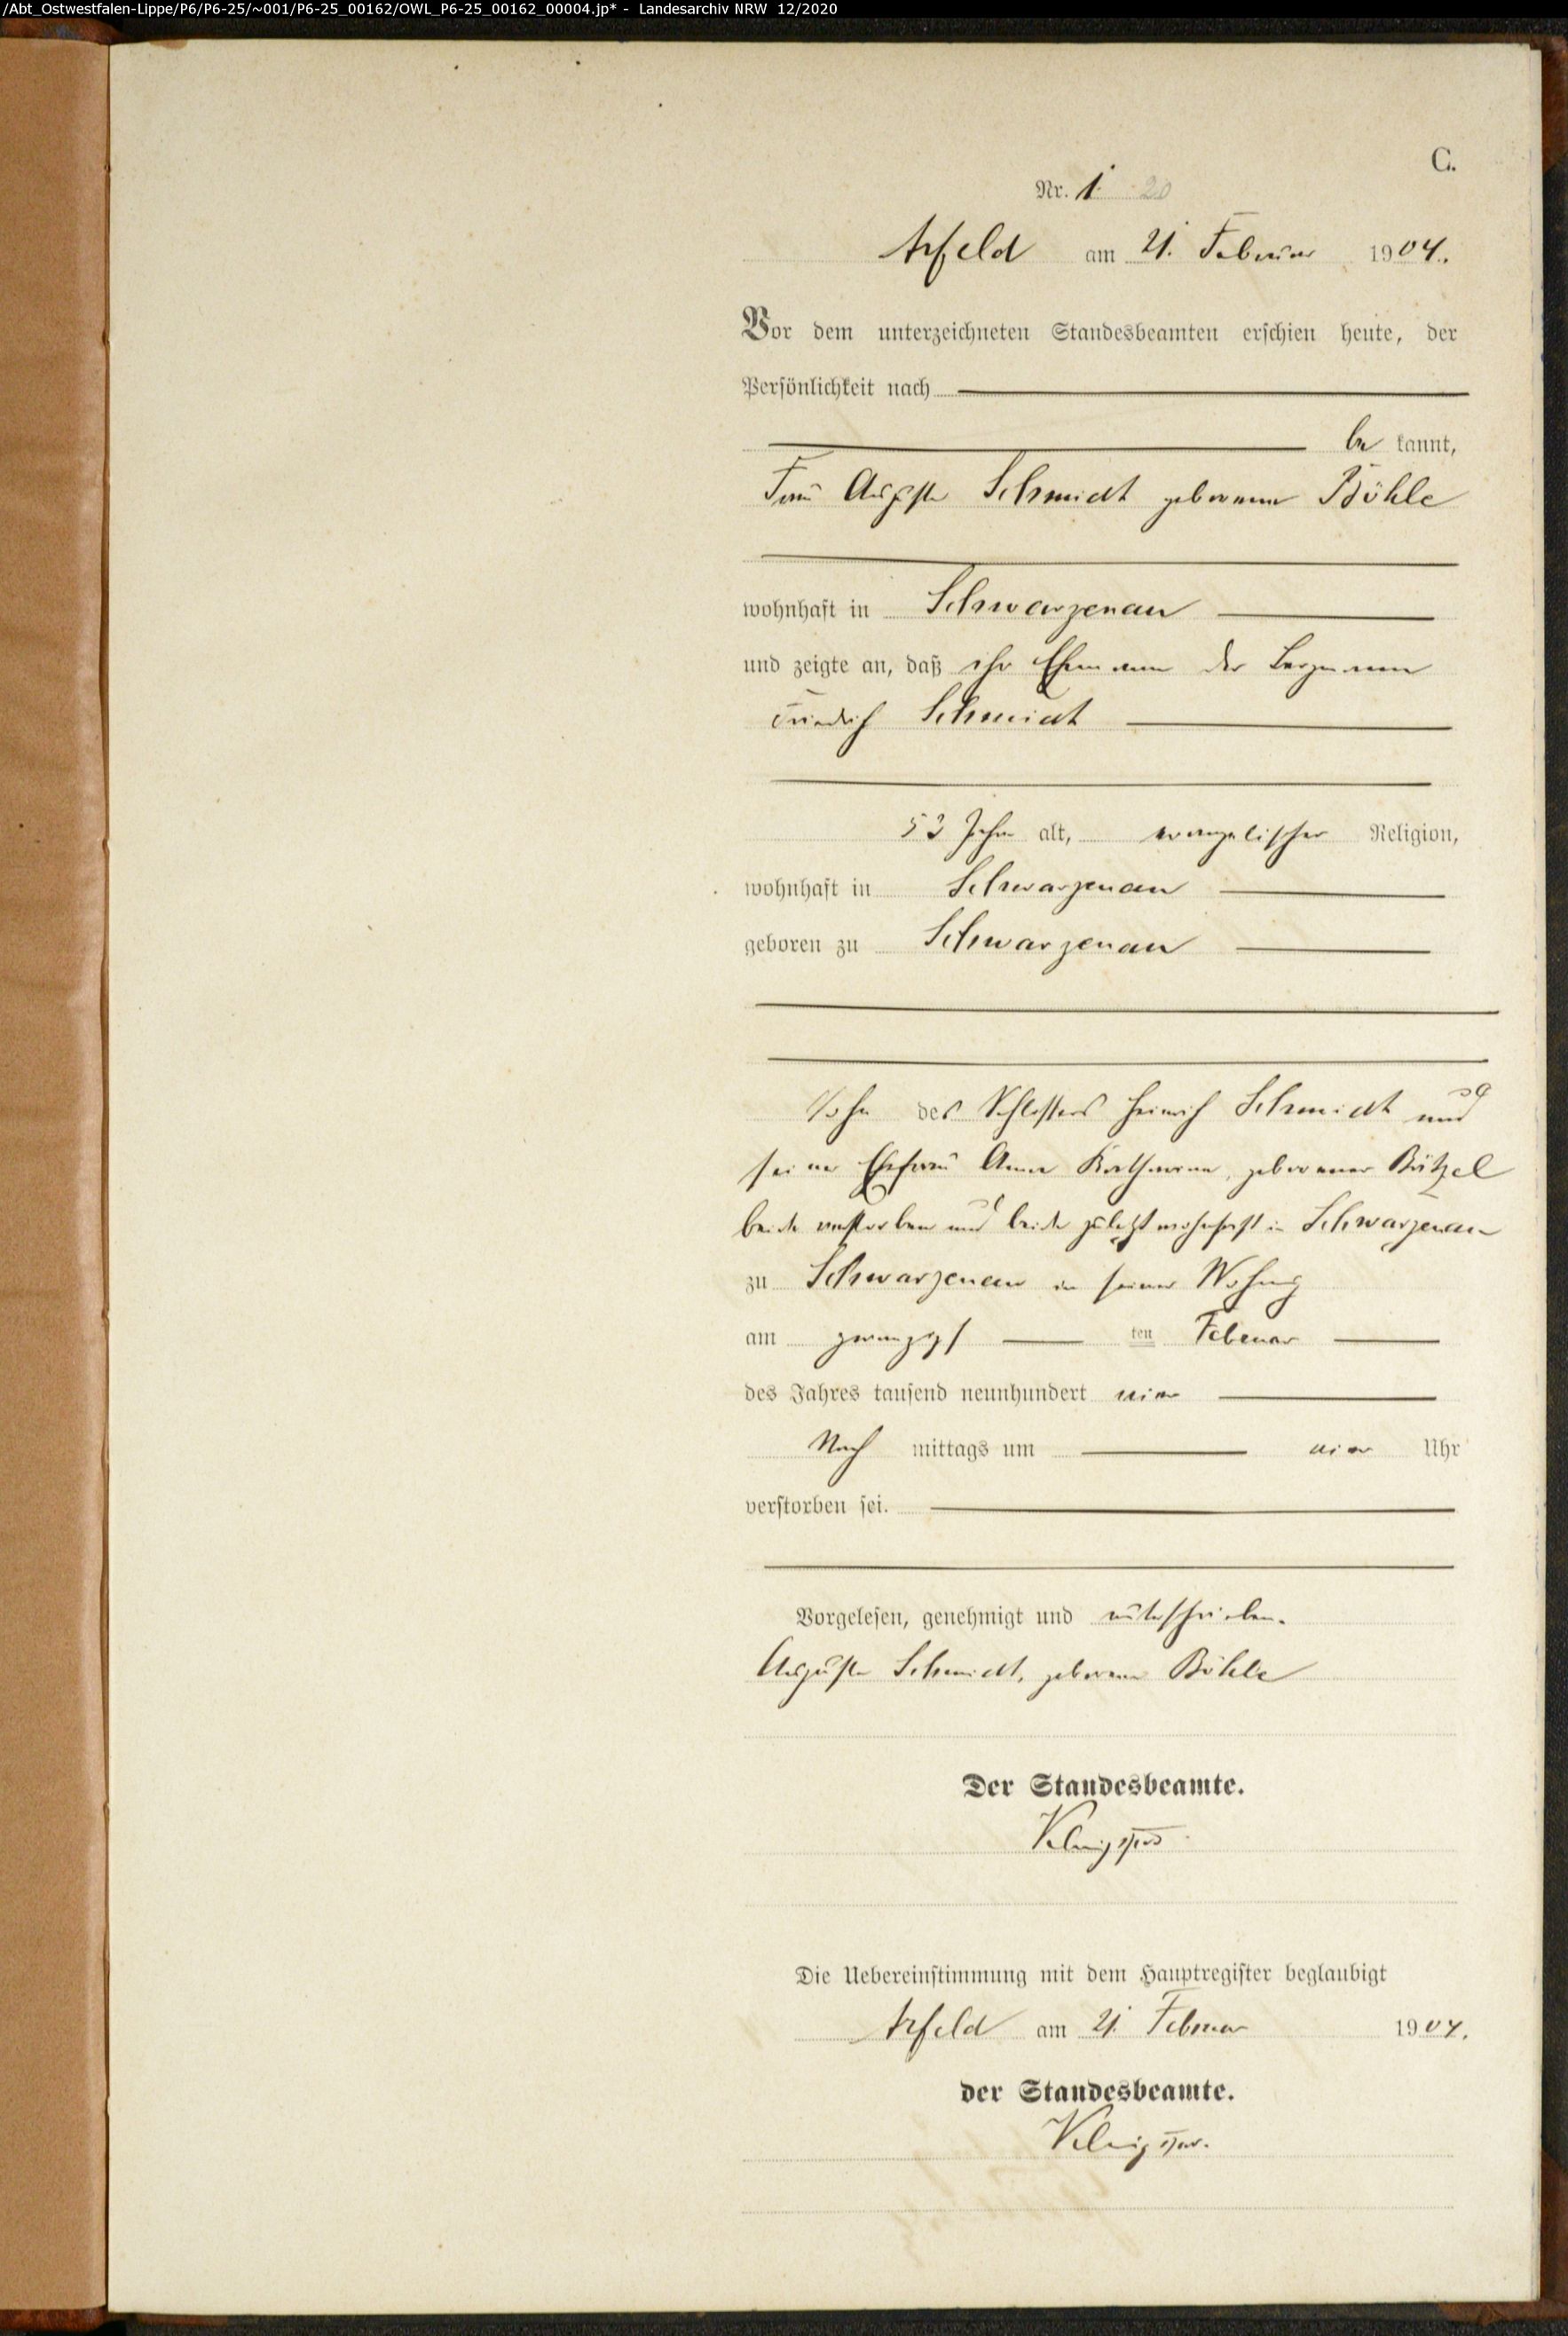 /Abt_Ostwestfalen-Lippe/P6/P6-25/~001/P6-25_00162/OWL_P6-25_00162_00004.jp* - Landesarchiv NRW 12/2020
C.
Nr. 1. 20
Arfeld am 21. Februar 1904.
Vor dem unterzeichneten Standesbeamten erschien heute, der
Persönlichkeit nach
be kannt,
Frau Auguste Schmidt geborene Böhle
wohnhaft in Schwarzenau
und zeigte an, daß ihr Ehemann der Bergmann
Friedrich Schmidt
53 Jahre alt, evangelischer Religion,
wohnhaft in Schwarzenau
geboren zu Schwarzenau
Sohn des Schlossers Heinrich Schmidt und
seiner Ehefrau Anna Katharina, geborener
beide verstorben und beide zuletzt wohnhaft in Schwarzenau
zu Schwarzenau in seiner Wohnung
am zwanzigs ten Februar
des Jahres tausend neunhundert vier
Nach mittags um vier Uhr
verstorben sei.
Vorgelesen, genehmigt und unterschrieben.
Auguste Schmidt, geborene Böhle
Der Standesbeamte.
Die Uebereinstimmung mit dem Hauptregister beglaubigt
Arfeld am 21. Februar 1904.
der Standesbeamte.